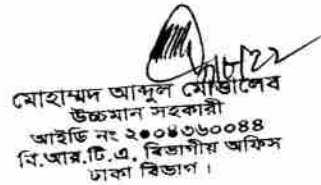 মোহাম্মদ আব্দুল মোত্তালেব
উচ্চমান সহকারী
আইডি নং ২০০৪৩৬০০৪৪
বি.আর.টি.এ. বিভাগীয় অফিস
ঢাকা বিভাগ।